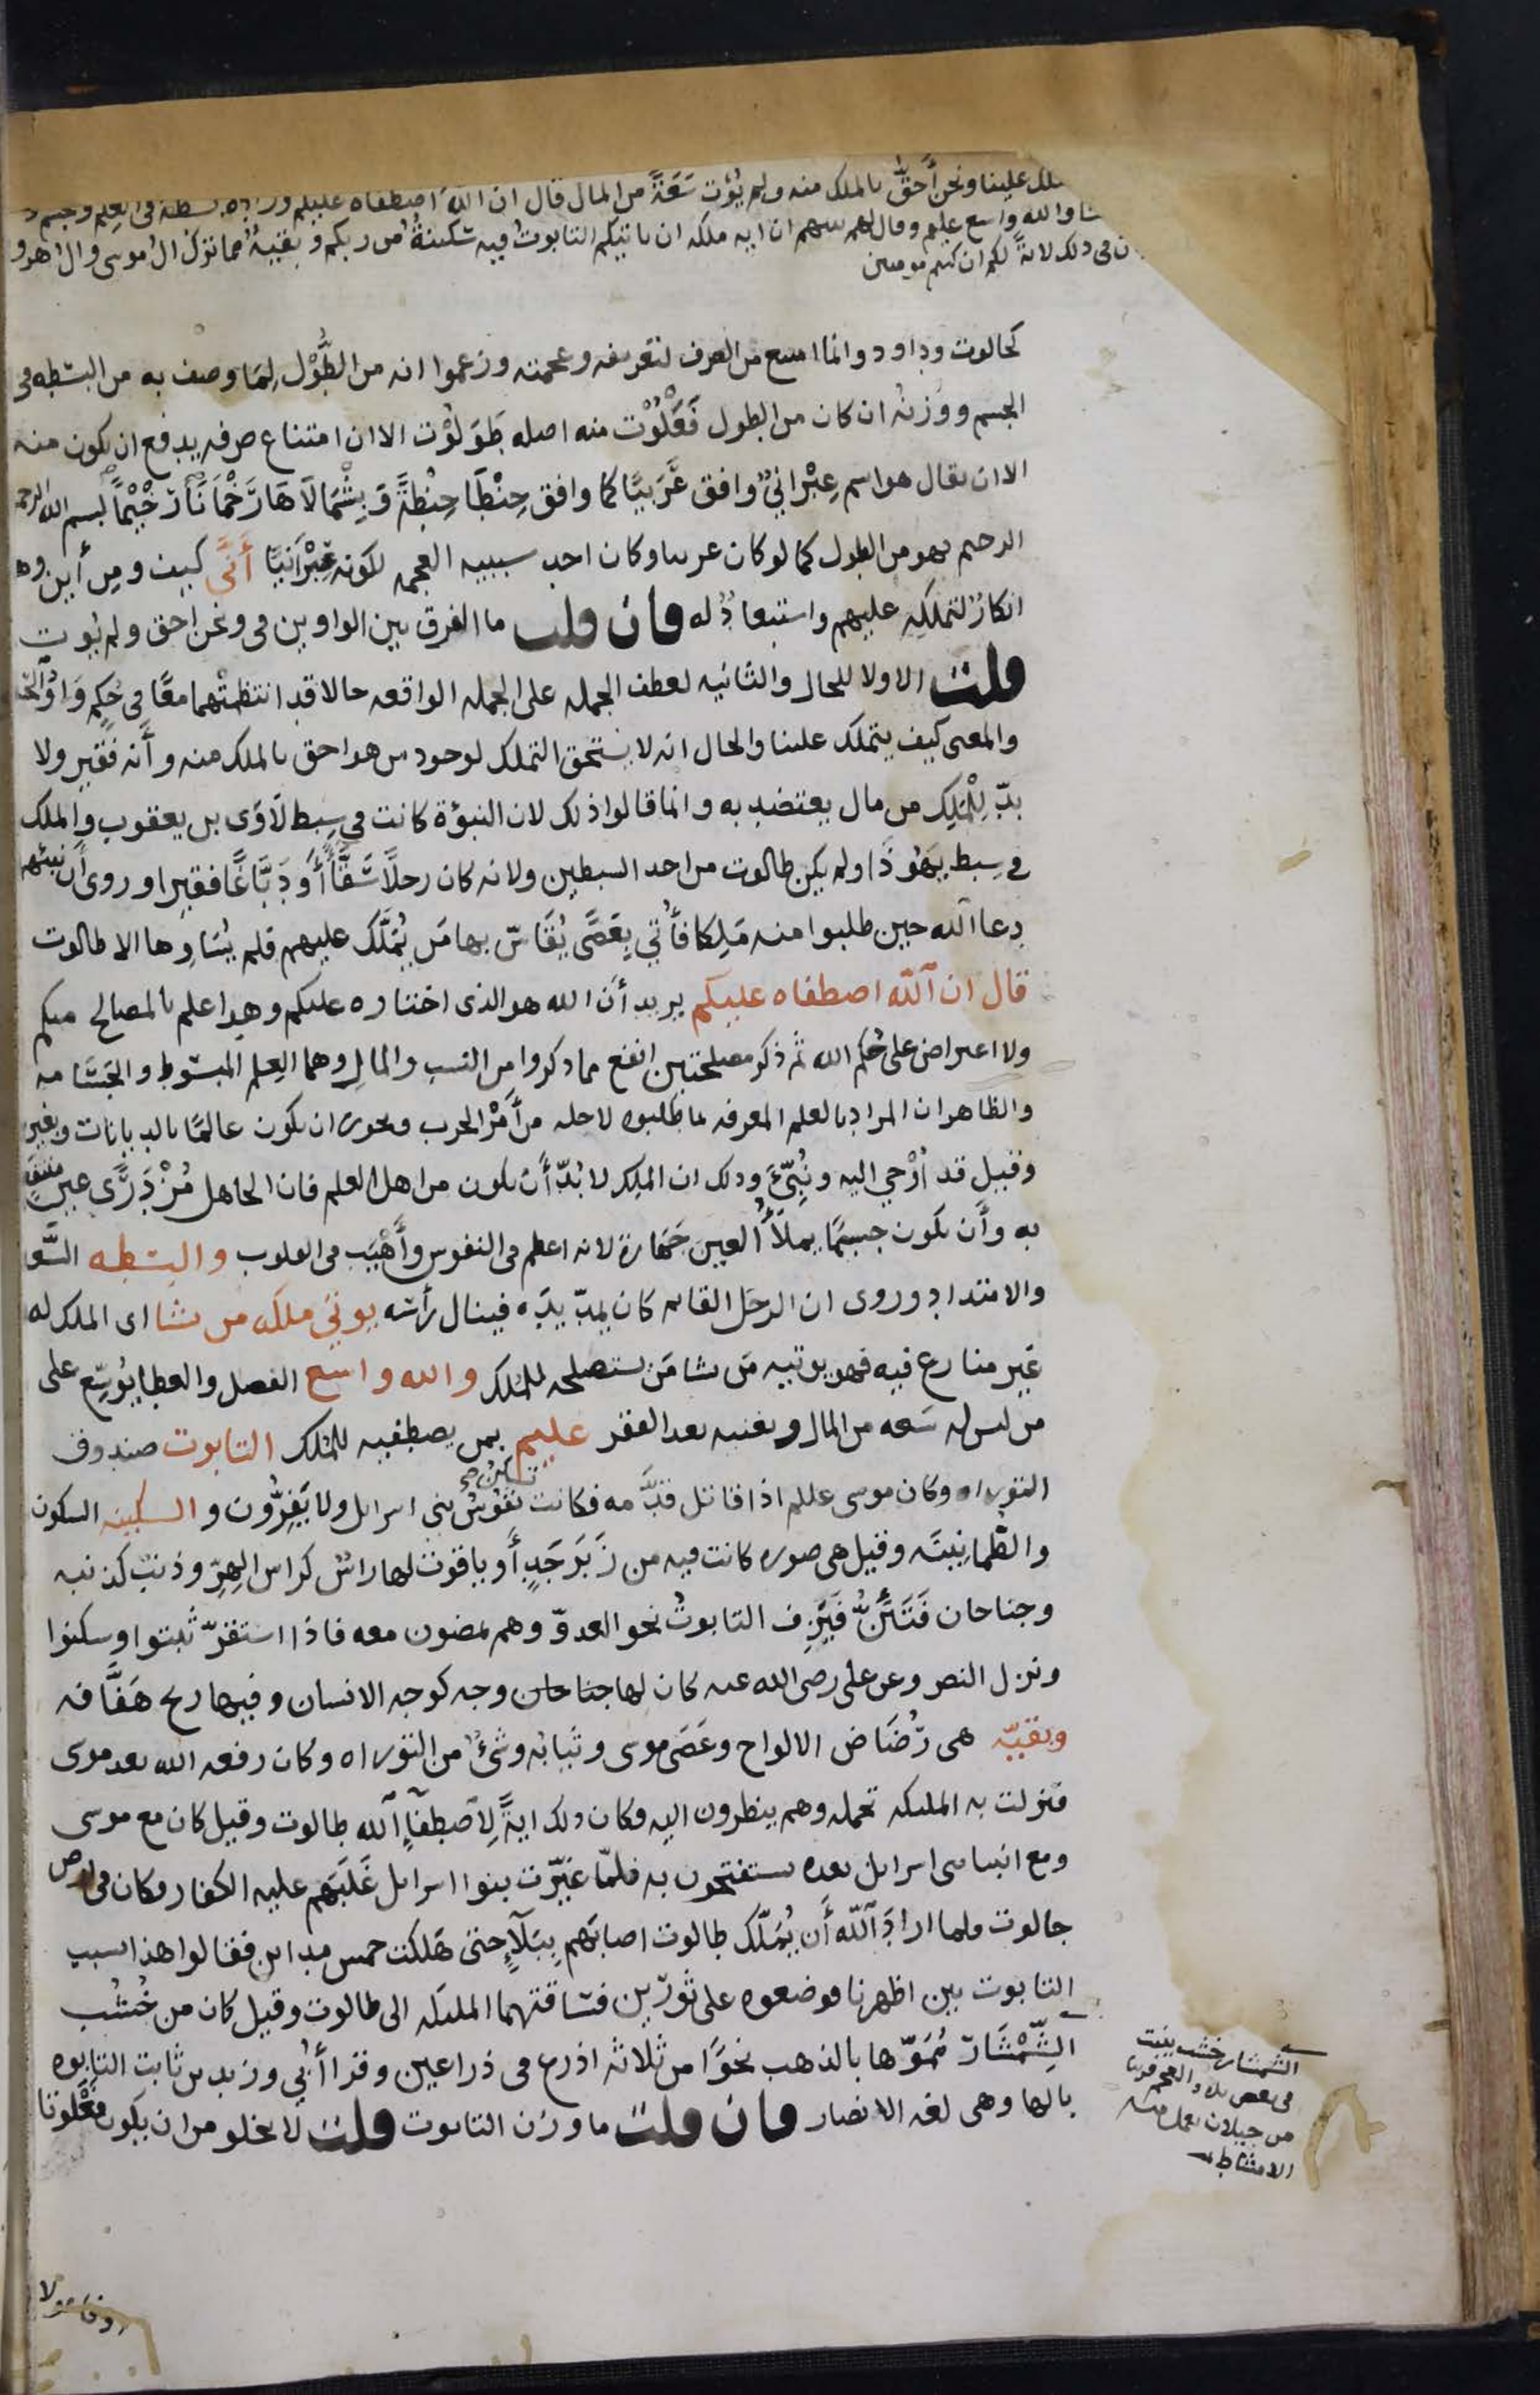 الملك علينا ونحن أحق بالملك منه ولم يؤت سَعَةً من المال قال ان الله اصطفاه عليكم وزاده بسطة في العلم والجسم
والله واسع عليم وقال لهم نبيهم ان اية ملكه ان ياتيكم التابوتُ فيه سكينةُ من ربكم وبقيةُ مما ترك ال موسى وال هرو
ان في ذلك لاية لكم ان كنتم مومنين
كجالوت وداود وانما امتنع من الصرف لتعريفه وعجمته وزعموا انه من الطُّوْل لِمَا وصف به من البسطه في
الجسم ووَزنُه ان كان من الطول فَعَلُوْت منه اصله طَوَلُوْت الا ان امتناع صرفه يدفع ان يكون منه
الا ان يقال هو اسم عِبْرانيٌّ وافق عَرَبيًّا كما وافق حِنْطَا حِنْطةً وَبِشْمَالَاهَارَّخْمَانَارَّخْيْمَاً بسم الله الرحمن
الرحيم فهو من الطول كما لو كان عربيا وكان احد سببيه العجمه لكونه عِبْرَانيًّا أَنَّى كيف ومِن أين وهو
انكارٌ لتملكِهِ عليهم واستبعادٌ له فان قلت ما الفرق بين الواوين في ونحن احق ولم يوت
قلت الاولا للحال والثانيه لعطف الجمله على الجمله الواقعه حالا قد انتظمتْهما معًا في حُكمِ وَاوُ الحال
والمعنى كيف يتملك علينا والحال انه لا يستحق التملك لوجود من هو احق بالملك منه وأنه فقير ولا
بدّ لِلْمَلِك من مال يعتضد به وانما قالوا ذلك لان النبؤة كانت في سِبط لَاوَى بن يعقوب والملك
في سِبط يهوْذَا ولم يكن طالوت من احد السبطين ولانه كان رجلًا سَقَّأً أوَدَبَّاغًا فقيرا وروى أن نبيهم
دعا الله حين طلبوا منه مَلِكا فأُتي بِعَصًى يُقَاسُ بها مَن يُمَلَّك عليهم فلم يُسَاوِها الا طالوت
قال ان الله اصطفاه عليكم يريد أن الله هو الذي اختاره عليكم وهو اعلم بالمصالح منكم
ولا اعتراض على حُكم الله ثم ذكر مصلحتين انفع مما ذكروا من النسب والمال وهما العِلم المبسوط والجَسَامه
والظاهر ان المراد بالعلم المعرفه بما طلبوه لاجله من أَمْر الحرب ويجوز ان يكون عالمًا بالديانات وبغيرها
وقيل قد أُوْحي اليه ونُبِّئَ وذلك ان الملِك لا بُدّ أن يكون من اهل العلم فان الجاهل مُزْدَرًى غير منتفَع
به وأن يكون جسيمًا يملأُ العين جَهارة لانه اعظم في النفوس وأَهْيَب في القلوب والبسطه السَّعه
والامتداد وروى ان الرجل القائم كان يمدّ يدَه فينال رأسَه يوتي ملكَه من يشا اى الملك له
غير منازع فيه فهو يوتيه مَن يشا مَن يستصلحه للمُلك والله واسع الفضل والعطا يُوسِّع على
من ليس له سَعه من المال ويغنيه بعد الفقر عليم بمن يصطفيه للمُلك التابوت صندوق
التوراه وكان موسى عللم اذا قاتل قدَّمه فكانت تسكن نفُوسُ بني اسرايل ولا يَفِرُّون والسكينه السكون
والطُّمانينَه وقيل هي صوره كانت فيه من زَبَرجَدٍ أو ياقوت لها راسٌ كراس الهِرِّ وذنبٌ كذنبه
وجناحان فَتَئِنُّ فَيَزِفّ التابوتُ نحو العدوّ وهم يمضون معه فاذا استقرّ ثبتوا وسكنوا
ونزل النصر وعن علي رضى الله عنه كان لها جناحان وجه كوجه الانسان وفيها ريح هَفَّافه
وبقيّه هي رُضَاض الالواح وعَصَى موسى وثيابُه وشىٌ من التوراه وكان رفعه الله بعد موسى
فنزلت به الملىكه تحمله وهم ينظرون اليه وكان ذلك ايةً لِاصْطفآءِ الله طالوت وقيل كان مع موسى
ومع انبيا بنى اسرايل بعده يستفتحون به فلمّا غيّرت بنوا اسرايل غَلَبَهم عليه الكفار فكان في ارض
جالوت فلما ارادَ الله أن يُملّك طالوت اصابَهم بِبَلآءٍ حتى هَلكت خمس مداين فقالوا هذا بسبب
التابوت بين اظهرنا فوضعوه على ثوريْن فسَاقتهما الملىكه الى طالوت وقيل كان من خُشُب
الشِّمْشَار مُمَوّها بالذهب نحوًا من ثلاثه اذرع في ذراعين وقرا أُبي وزيد بن ثابت التابوه
بالها وهي لغه الانصار فان قلت ما وزن التابوت قلت لا يخلو من ان يكون فَعْلُوتا
الشمشار خشب ينبت
في بعض بلاد العجم قريبا
من جيلان يعمل منه
الامشاط
او فاعولا